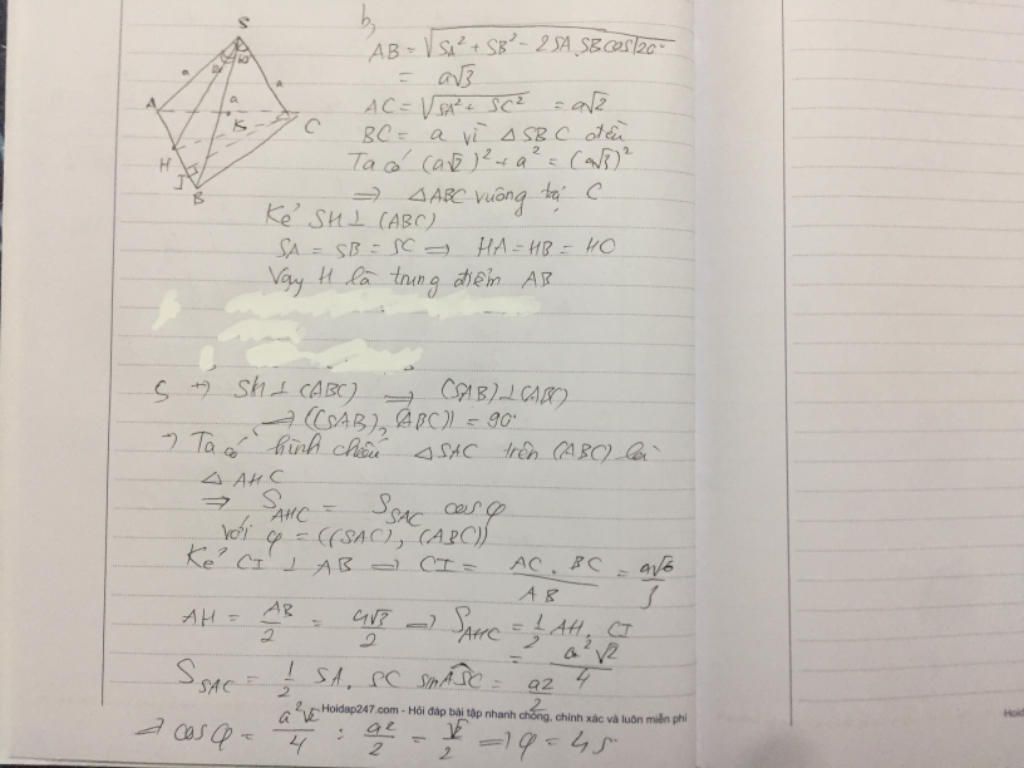 S
a
a
120°
60°
a
A
K
C
H
I
B
b,
AB = √(SA² + SB² - 2SA.SB cos120°)
= a√3
AC = √(SA² + SC²) = a√2
BC = a vì △SBC đều
Ta có (a√2)² + a² = (a√3)²
⇒ △ABC vuông tại C
Kẻ SH ⊥ (ABC)
SA = SB = SC ⇒ HA = HB = HC
Vậy H là trung điểm AB
SH ⊥ (ABC) ⇒ (SAB) ⊥ (ABC)
⇒ ((SAB), (ABC)) = 90°
Ta có hình chiếu △SAC trên (ABC) là
△AHC
⇒ S_AHC = S_SAC cosφ
với φ = ((SAC), (ABC))
Kẻ CI ⊥ AB ⇒ CI = AC.BC/AB = a√6/3
AH = AB/2 = a√3/2 ⇒ S_AHC = 1/2 AH.CI
= a²√2/4
S_SAC = 1/2 SA.SC sinASC = a²/2
Hoidap247.com - Hỏi đáp bài tập nhanh chóng, chính xác và luôn miễn phí
⇒ cosφ = a²√2/4 : a²/2 = √2/2 ⇒ φ = 45
Hoid